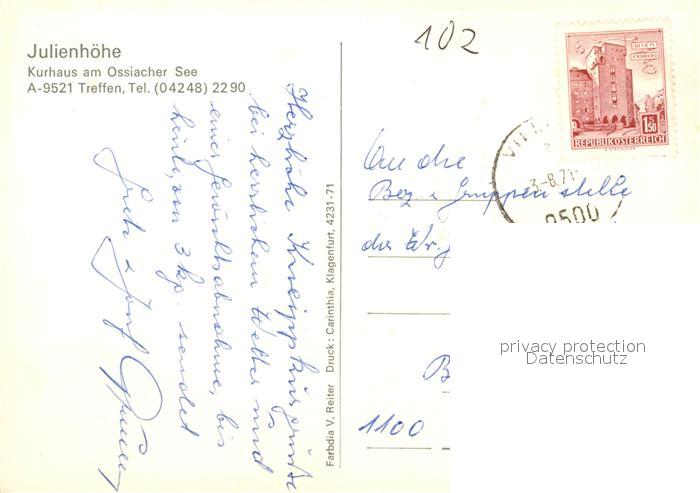 Julienhöhe
Kurhaus am Ossiacher See
A-9521 Treffen, Tel. (04248) 2290
Herzliche Kneippkurgrüße
bei herrlichem Wetter und
einer Gewichtsabnahme, bis
heute, von 3 kg. sendet
Josef
Farbdia V. Reiter Druck: Carinthia, Klagenfurt, 4231-71
102
WIEN
ERDBERG
1.50
S
REPUBLIK ÖSTERREICH
VILL
3-8.71
9500
An die
Bez. u Gruppenstelle
der Wr.
B
1100
privacy protection
Datenschutz